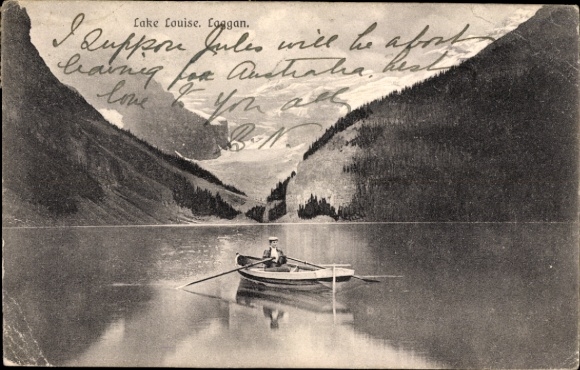 Lake Louise. Laggan.
I Suppose Jules will be about
leaving for Australia. best
love to you all
B. N